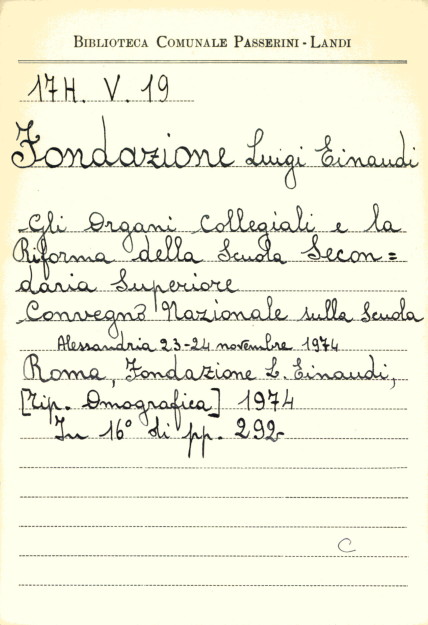 BIBLIOTECA COMUNALE PASSERINI-LANDI
17H. V. 19
Fondazione Luigi Einaudi
Gli Organi Collegiali e la
Riforma della Scuola Secon=
daria Superiore
Convegno Nazionale sulla Scuola
Alessandria 23-24 novembre 1974
Roma, Fondazione L. Einaudi,
[Tip. Omografica] 1974
In 16° di pp. 292
C